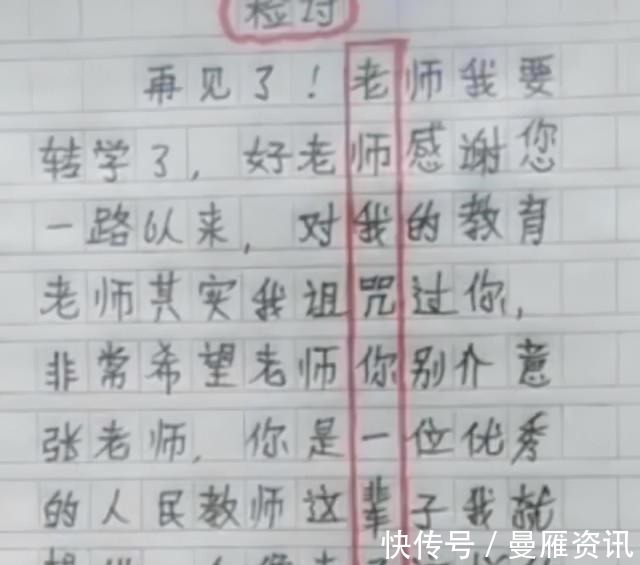 检讨
再见了！老师我要
转学了，好老师感谢您
一路以来，对我的教育
老师其实我诅咒过你，
非常希望老师你别介意
张老师，你是一位优秀
的人民教师这辈子我就
快传号／曼雁资讯